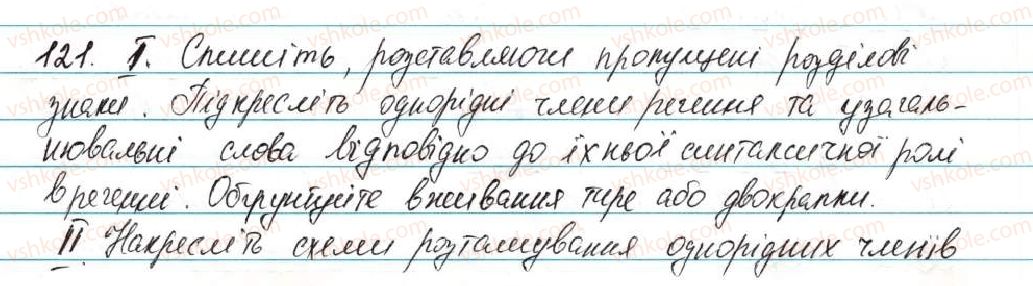 121. I. Спишіть, розставляючи пропущені розділові
знаки. Підкресліть однорідні члени речення та узагаль-
нювальні слова відповідно до їхньої синтаксичної ролі
в реченні. Обґрунтуйте вживання тире або двокрапки.
II Накресліть схеми розташування однорідних членів